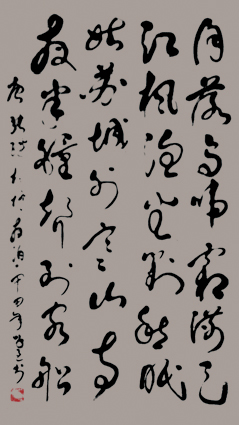 月落乌啼霜满天
江枫渔火对愁眠
姑苏城外寒山寺
夜半鐘聲到客船
唐张继枫桥夜泊 年书